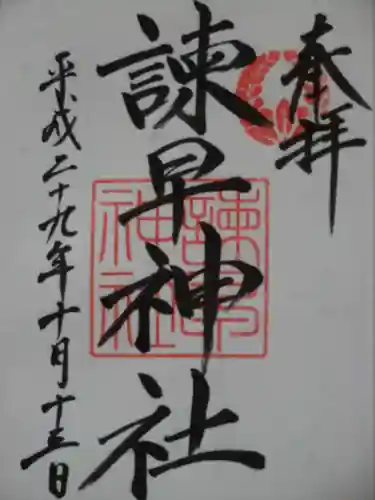 奉拝
諫早神社
諫早神社
平成二十九年十月十三日